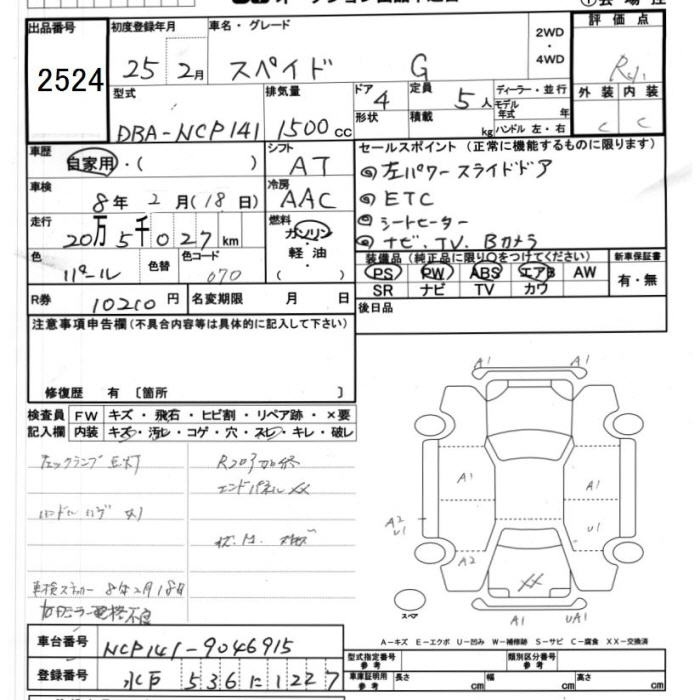 出品番号
2524
初度登録年月
25 2月
車名・グレード
スペイド G
2WD
・
4WD
評価点
R
外装 内装
C C
型式
DBA-NCP141
排気量
1500 cc
ドア
4
形状
定員
5人
積載
kg
ディーラー・並行
モデル
年式 年
ハンドル 左・右
車歴
自家用・( )
シフト
AT
セールスポイント (正常に機能するものに限ります)
◎左パワースライドドア
◎ETC
◎シートヒーター
◎ナビ、TV、Bカメラ
車検
8年 2月(18日)
冷房
AAC
走行
20万5千027km
燃料
ガソリン
軽油
( )
色
パール
色替
色コード
070
装備品 (純正品に限り○をつけてください)
PS PW ABS エアB AW
SR ナビ TV カワ
新車保証書
有・無
R券 10210円
名変期限 月 日
後日品
注意事項申告欄 (不具合内容等は具体的に記入して下さい)
修復歴 有 〔箇所 〕
検査員
記入欄
FW キズ・飛石・ヒビ割・リペア跡・×要
内装 キズ・汚レ・コゲ・穴・スレ・キレ・破レ
エンドパネルXX
車検ステッカー 8年2月18日
A1 A1
A1
A1
A2
U1
U1
A2
XX
A1 UA1
スペア
A-キズ E-エクボ U-凹み W-補修跡 S-サビ C-腐食 XX-交換済
車台番号 NCP141-9046915
登録番号 水戸 536 に 1227
型式指定番号
参考
類別区分番号
参考
車庫証明用
参考
長さ cm
幅 cm
高さ cm